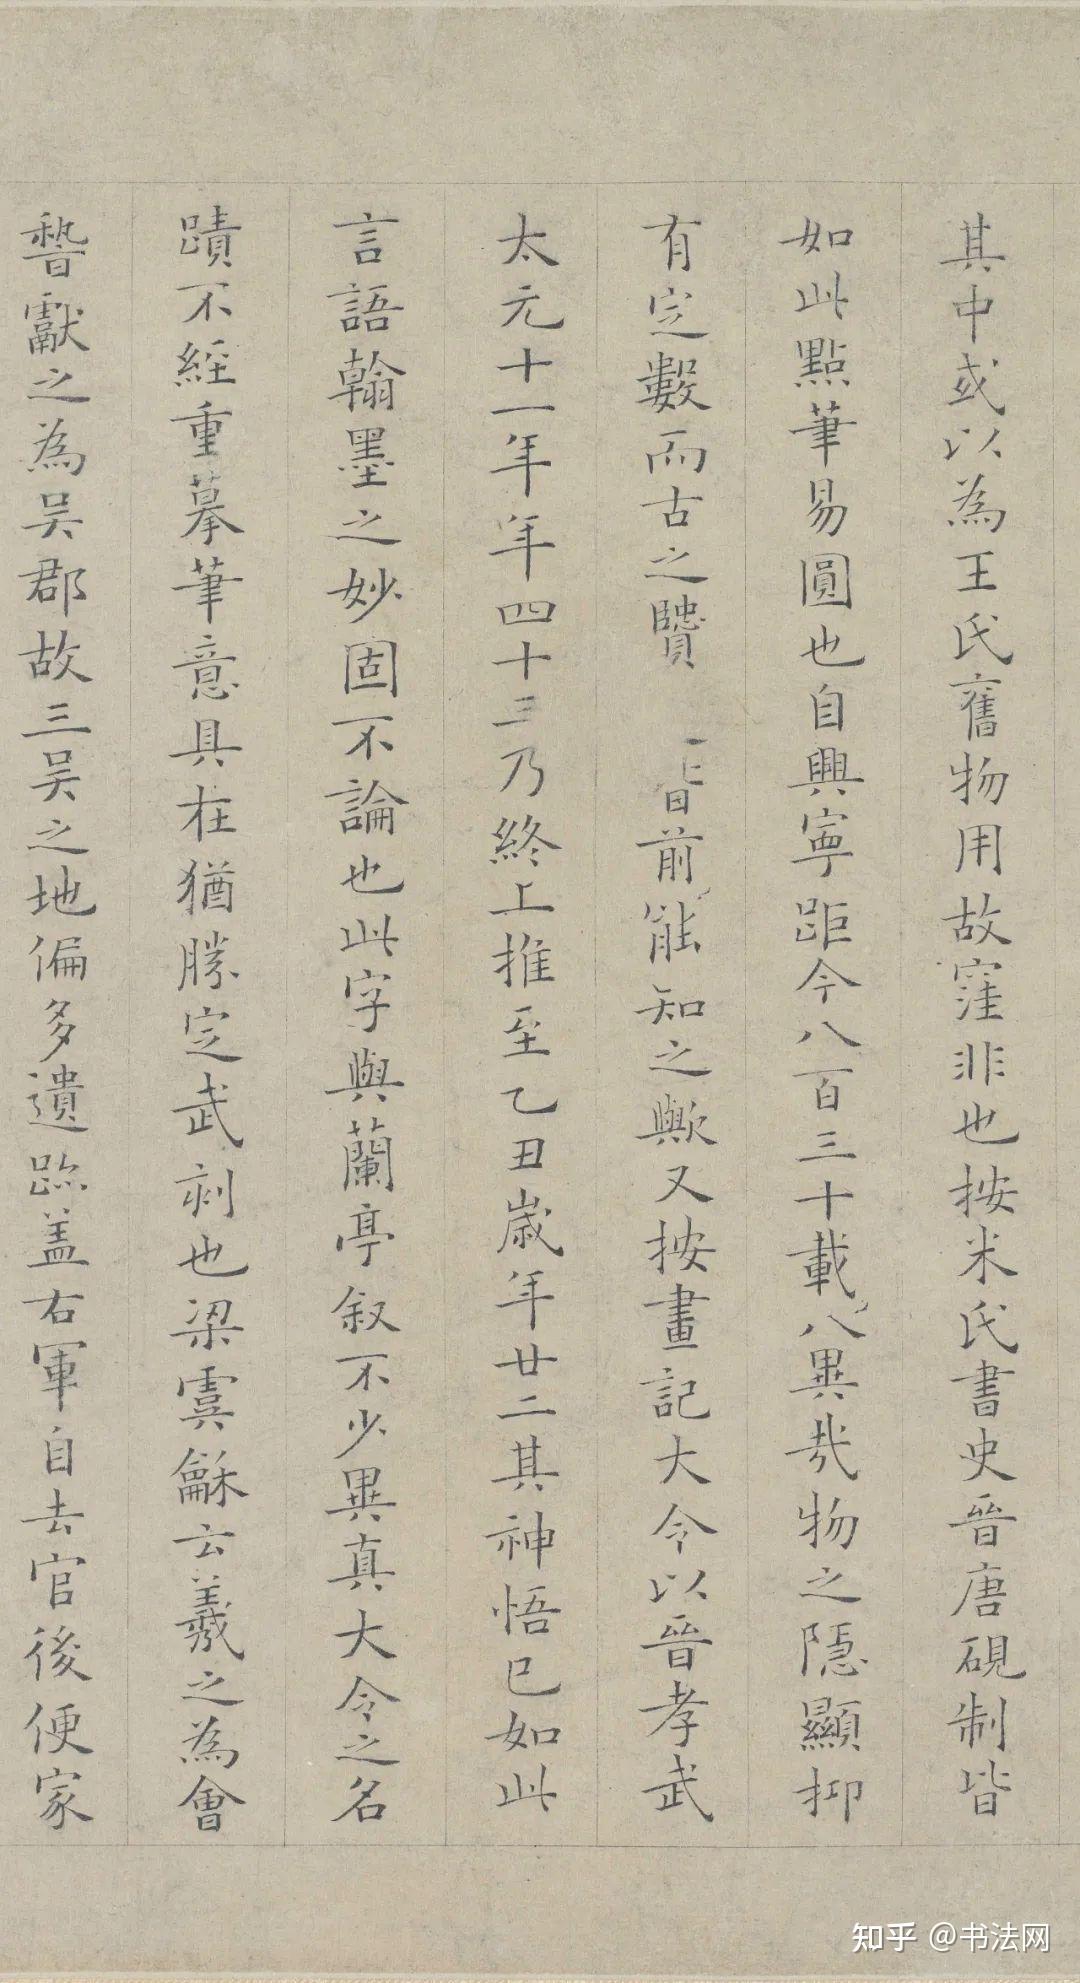 其中或以為王氏舊物用故窪非也按米氏書史晉唐硯制皆
如此點筆易圓也自興寧距今八百三十載八異哉物之隱顯抑
有定數而古之賢前能知之歟又按畫記大令以晉孝武
太元十一年年四十三乃終上推至乙丑歲年廿二其神悟已如此
言語翰墨之妙固不論也此字與蘭亭叙不少異真大令之名
蹟不經重摹筆意具在猶勝定武刻也梁虞龢云羲之為會
稽獻之為吳郡故三吳之地偏多遺跡盖右軍自去官後便家
知乎 @书法网